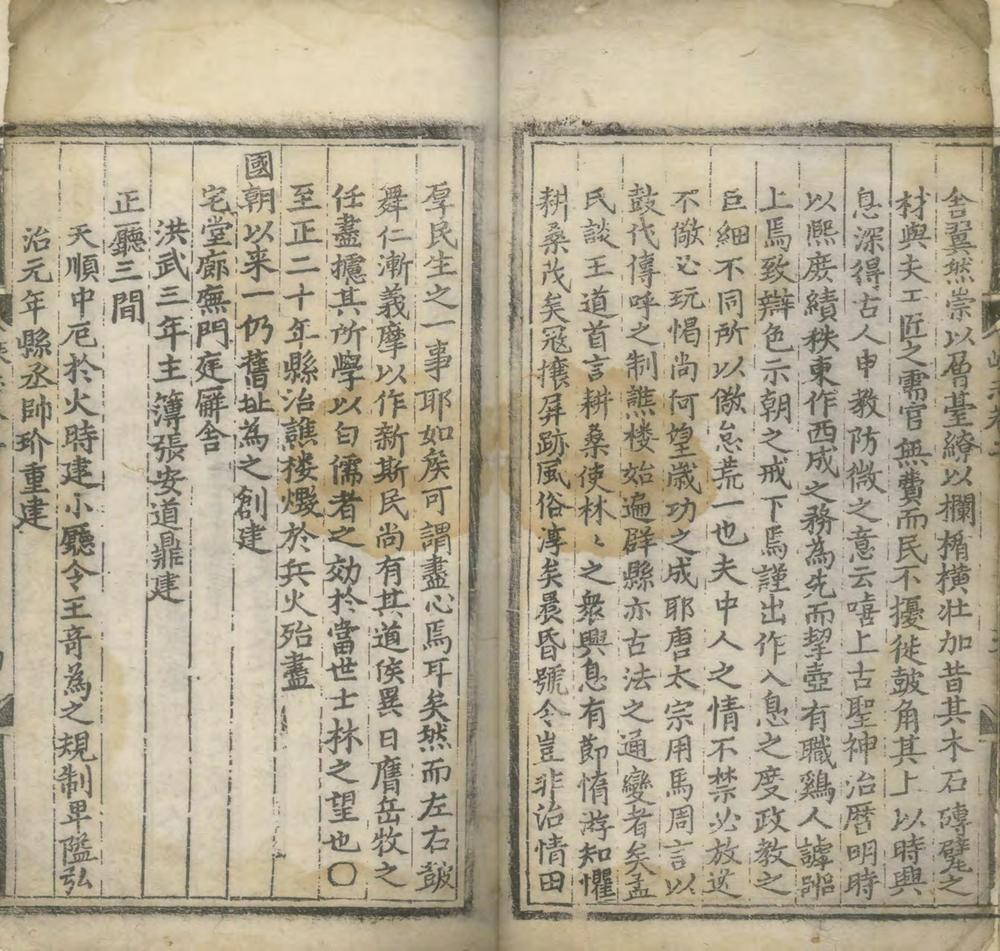 舍翼然崇以層臺繚以欄楯橫壯加昔其木石磚甓之
材與夫工匠之需官無費而民不擾徙鼓角其上以時興
息深得古人申教防微之意云嘻上古聖神治曆明時
以熈庶績秩東作西成之務為先而挈壺有職鷄人謼㫾
上焉致辯色示朝之戒下焉謹出作入息之度政教之
巨細不同所以儆怠荒一也夫中人之情不禁必放逸
不儆必玩愒尚何望歲功之成耶唐太宗用馬周言以
鼓代傳呼之制譙楼始遍辟縣亦古法之通變者矣孟
氏談王道首言耕桑使林〻之衆興息有節惰游知懼
耕桑茂矣冦攘屏跡風俗淳矣晨昏號令豈非治情田
厚民生之一事耶如矦可謂盡心焉耳矣然而左右皷
舞仁漸義摩以作新斯民尚有其道矦異日膺岳牧之
任盡攄其所學以白儒者之効於當世士林之望也〇
至正二十年縣治譙楼燬於兵火殆盡
國朝以来一仍舊址為之創建
宅堂廊廡門庭廨舍
洪武三年主簿張安道鼎建
正廳三間
天順中厄於火時建小廳令王竒為之規制卑隘弘
治元年縣丞帥玠重建